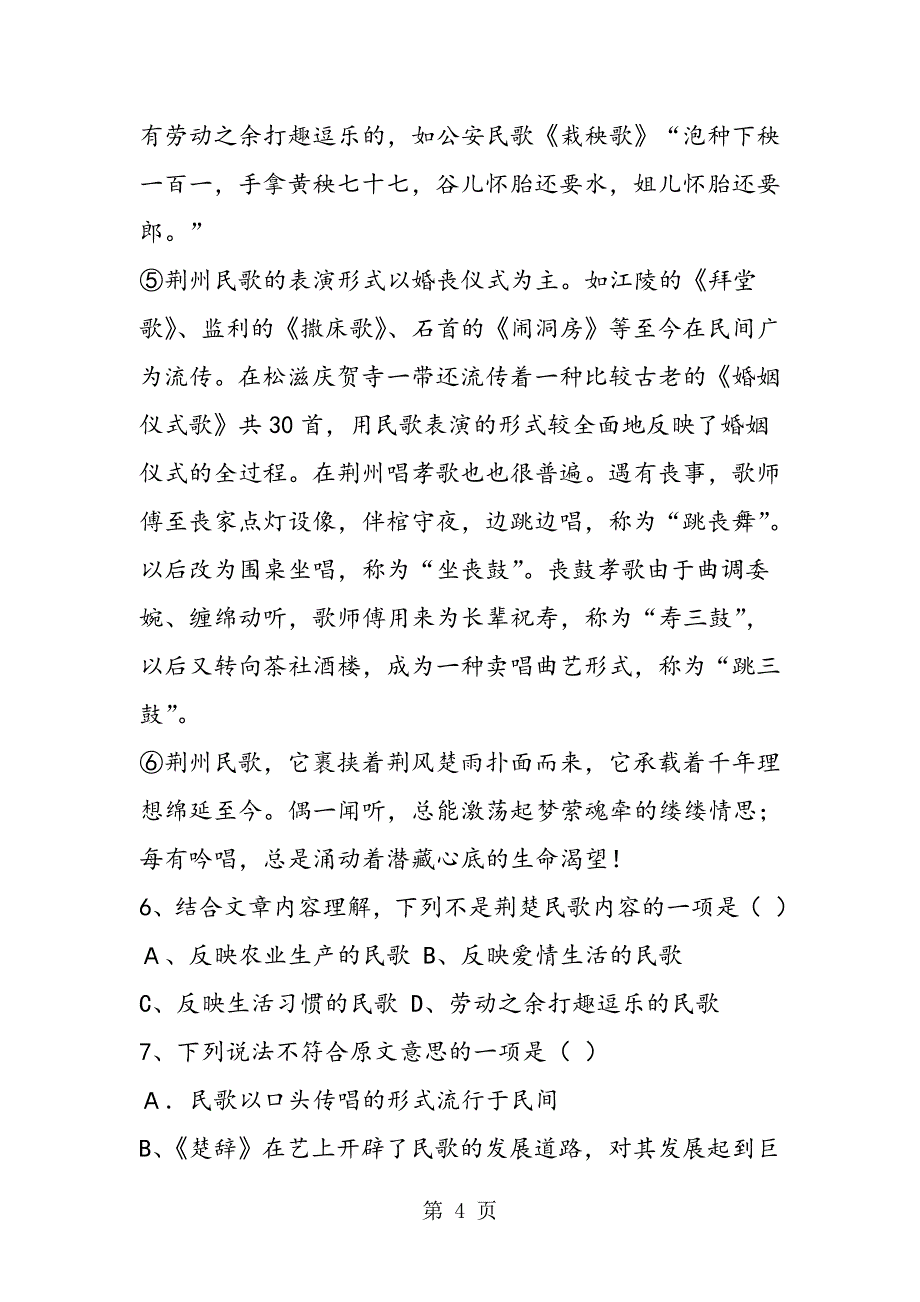 有劳动之余打趣逗乐的，如公安民歌《栽秧歌》“泡种下秧
一百一，手拿黄秧七十七，谷儿怀胎还要水，姐儿怀胎还要
郎。”
⑤荆州民歌的表演形式以婚丧仪式为主。如江陵的《拜堂
歌》、监利的《撒床歌》、石首的《闹洞房》等至今在民间广
为流传。在松滋庆贺寺一带还流传着一种比较古老的《婚姻
仪式歌》共 30 首，用民歌表演的形式较全面地反映了婚姻
仪式的全过程。在荆州唱孝歌也也很普遍。遇有丧事，歌师
傅至丧家点灯设像，伴棺守夜，边跳边唱，称为“跳丧舞”。
以后改为围桌坐唱，称为“坐丧鼓”。丧鼓孝歌由于曲调委
婉、缠绵动听，歌师傅用来为长辈祝寿，称为“寿三鼓”，
以后又转向茶社酒楼，成为一种卖唱曲艺形式，称为“跳三
鼓”。
⑥荆州民歌，它裹挟着荆风楚雨扑面而来，它承载着千年理
想绵延至今。偶一闻听，总能激荡起梦萦魂牵的缕缕情思；
每有吟唱，总是涌动着潜藏心底的生命渴望！
6、结合文章内容理解，下列不是荆楚民歌内容的一项是（ ）
Ａ、反映农业生产的民歌 B、反映爱情生活的民歌
C、反映生活习惯的民歌 D、劳动之余打趣逗乐的民歌
7、下列说法不符合原文意思的一项是（ ）
Ａ．民歌以口头传唱的形式流行于民间
B、《楚辞》在艺上开辟了民歌的发展道路，对其发展起到巨
第 4 页